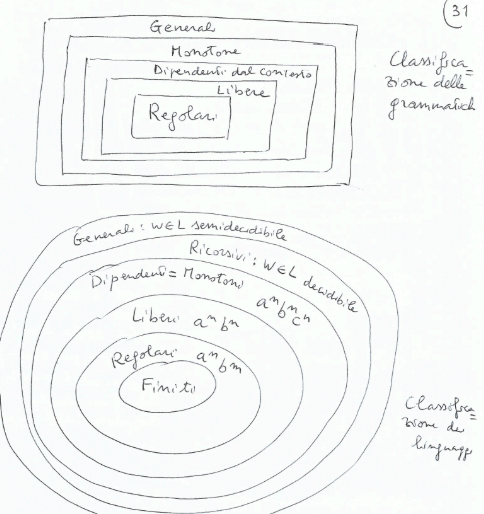 31
General
Monotone
Dipendenti dal contesto
Libere
Regolari
Classifica=
zione delle
grammatich
Generali: w∈L semidecidibile
Ricorsivi: w∈L decidibile
Dipendenti = Monotoni
aⁿbⁿcⁿ
Liberi aⁿbⁿ
Regolari aⁿbᵐ
Finiti
Classifica=
zione de
linguagg